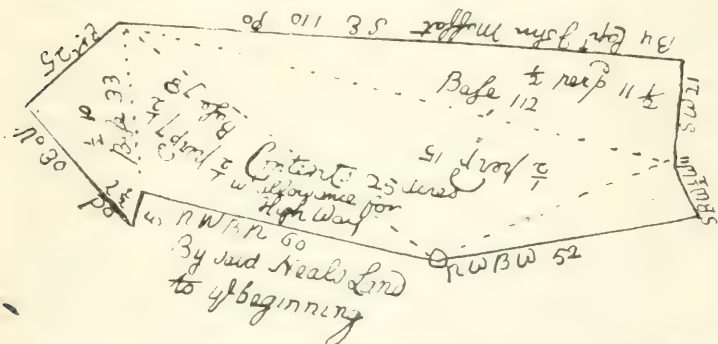 By Capt John Moffat SE 110 po
25
Base 33
Base 78
½ perp 7 ½
Base 112
½ perp 11 ½
½ perp 15
12 W S
Contents 25 acres
w allowance for
High Way
N W B N 60
N W B W 52
By said Neals Land
to ye beginning